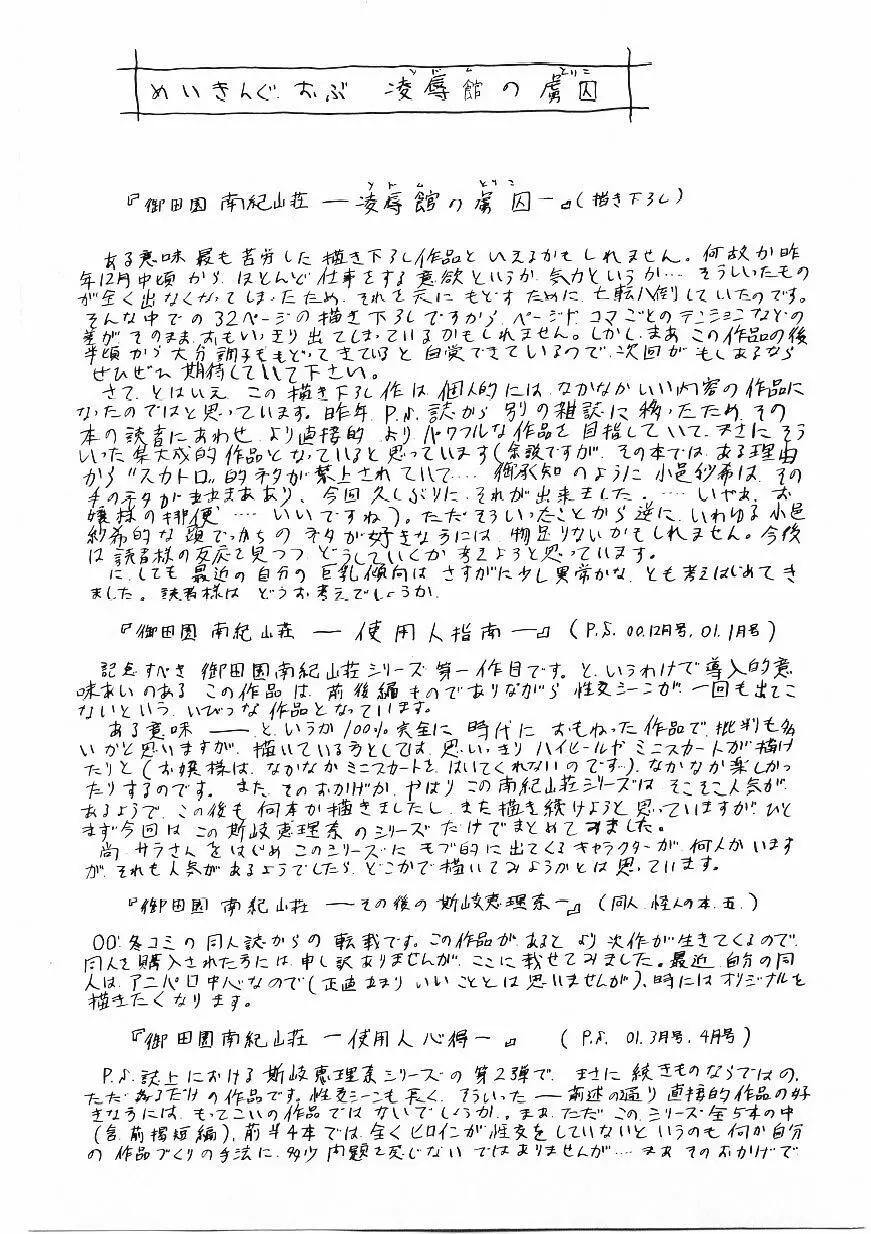 めいきんぐ おぶ 凌辱館の虜囚
『御田園 南紀山荘 ― 凌辱館の虜囚 ―』(描き下ろし)
ある意味 最も苦労した 描き下ろし作品と いえるかもしれません。何故か昨
年12月中頃 から、ほとんど仕事をする意欲というか、気力というか…… そういったもの
が全く出なくなってしまったため、それを元に もどすために、七転八倒していたのです。
そんな中での 32ページの 描き下ろしですから、ページや コマごとのテンションなどの
差が、そのまま、おもいっきり出てしまっているかもしれません。しかし、まあ、この作品の後
半頃 から 大分調子ももどってきていると 自覚できているので、次回が もしあるなら
ぜひぜひ 期待していて下さい。
さて、とはいえ、この描き下ろし作は、個人的には、なかなかいい内容の作品に
なったのではと思っています。昨年、P.S.誌から 別の雑誌に 移ったため、その
本の読者にあわせ、より直接的、より、パワフルな作品を 目指していて、まさに そう
いった 集大成的作品と なっていると 思っています(余談ですが、その本では、ある理由
から"スカトロ"的ネタが禁止されていて…… 御承知のように 小邑紗希は、その
手のネタが まあまああり、今回 久しぶりに、それが出来ました。…… いやぁ、お
嬢様の排便…… いいですね)。ただ そういったことから 逆に、いわゆる 小邑
紗希的な 頭でっからの ネタが好きな方には、物足りないかもしれません。今後
は 読者様の反応を見つつ どうしていくか 考えようと思っています。
に、しても 最近の自分の 巨乳傾向は さすがに少し異常かな、とも考えはじめてき
ました。読者様は どうお考えでしょうか。
『御田園 南紀山荘 ― 使用人指南 ―』(P.S. 00.12月号, 01.1月号)
記念すべき 御田園南紀山荘シリーズ 第一作目です。と、いうわけで導入的意
味あいのある この作品は、前後編ものでありながら 性交シーンが、一回も出てこ
ないという、いびつな作品となっています。
ある意味 ―― と、いうか 100% 完全に 時代に おもねった 作品で、批判も多
いかと思いますが、描いている方としては、思いっきり ハイヒールや ミニスカートが描け
たりと(お嬢様は、なかなかミニスカートを、はいてくれないのです…)、なかなか楽しかっ
たりするのです。また、そのおかげか、やはり この南紀山荘シリーズは、そこそこ人気が
あるようで、この後も 何本か描きましたし、また描き続けようと思っていますが、ひと
まず今回は、この斯岐恵理奈のシリーズだけでまとめてみました。
尚、サラさんをはじめ このシリーズに モブ的に出てくるキャラクターが、何人かいます
が、それも人気があるようでしたら、どこかで描いてみようかとは思っています。
『御田園 南紀山荘 ― その後の斯岐恵理奈 ―』(同人、怪人の本、五.)
00'.冬コミの 同人誌からの 転載です。この作品があると より次作が生きてくるので、
同人を購入された方には、申し訳ありませんが、ここに載せてみました。最近、自分の同
人は、アニパロ中心なので(正直あまり いいこととは思いませんが)、時にはオリジナルを
描きたくなります。
『御田園南紀山荘 ― 使用人心得 ―』 (P.S. 01.3月号,4月号)
P.S.誌上における 斯岐恵理奈シリーズの 第2弾で、まさに 続きものならではの、
ただあるだけの作品です。性交シーンも長く、そういった ― 前述の通り 直接的作品の好
きな方には、もってこいの作品では ないでしょうか。まぁ、ただ この、シリーズ全5本の中
(含.前掲短編)、前半4本では、全くヒロインが性交をしていないと いうのも 何か自分
の 作品づくりの手法に、多少 問題を感じない ではありませんが…… まぁ そのおかげで